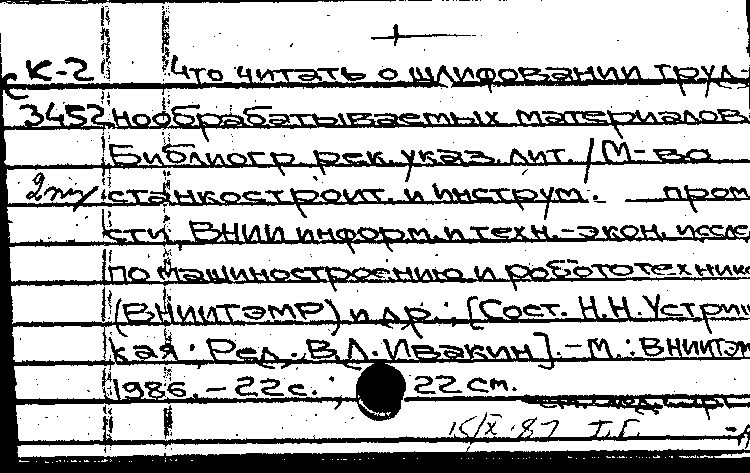 К-2 Что читать о шлифовании труд-
3452 нообрабатываемых материалов.
Библиогр. рек. указ. лит. / М-во
станкостроит. и инструм. пром
сти, ВНИИ информ. и техн.-экон. иссле
по машиностроению и робототехник
(ВНИИТЭМР) и др.; [Сост. Н.Н. Устрин
кая; Ред. В.Л. Ивакин]. - М.: ВНИИТЭМ
1986. - 22 с.; 22 см.
15/X-87 Т.Г.